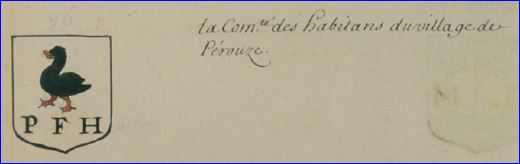 la Com.té des habitans du village de
Pérouze.
P F H